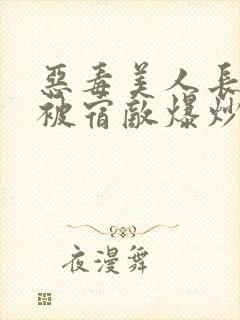 惡毒美人長
被宿敵爆炒
夜漫舞